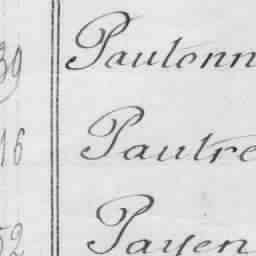 39 Paulonn
16 Pautre
52 Payen